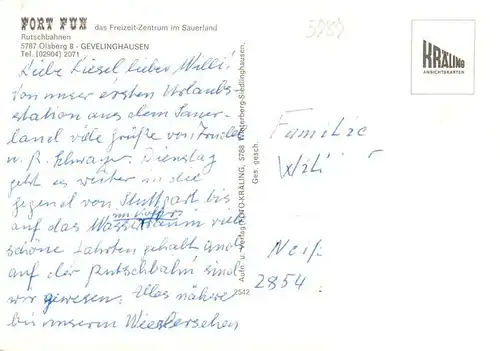 FORT FUN das Freizeit-Zentrum im Sauerland
Rutschbahnen
5787 Olsberg 8 - GEVELINGHAUSEN
Tel. (02904) 2071
Liebe Liesel, lieber Willi!
Von unser ersten Urlaubs-
station aus dem Sauer-
land viele Grüße von
u. R. Schwager. Dienstag
geht es weiter in die
gegend von Stuttgart bis
auf das Wasser viele
schöne Fahrten gehabt und
auf der Rutschbahn sind
wir gewesen. Alles nähere
bei unserm Wiedersehen
Aufn. u. Verlag: FOTO-KRÄLING, 5788 Winterberg-Siedlinghausen.
Ges. gesch.
2542
5983
KRÄLING
ANSICHTSKARTEN
Familie
2854